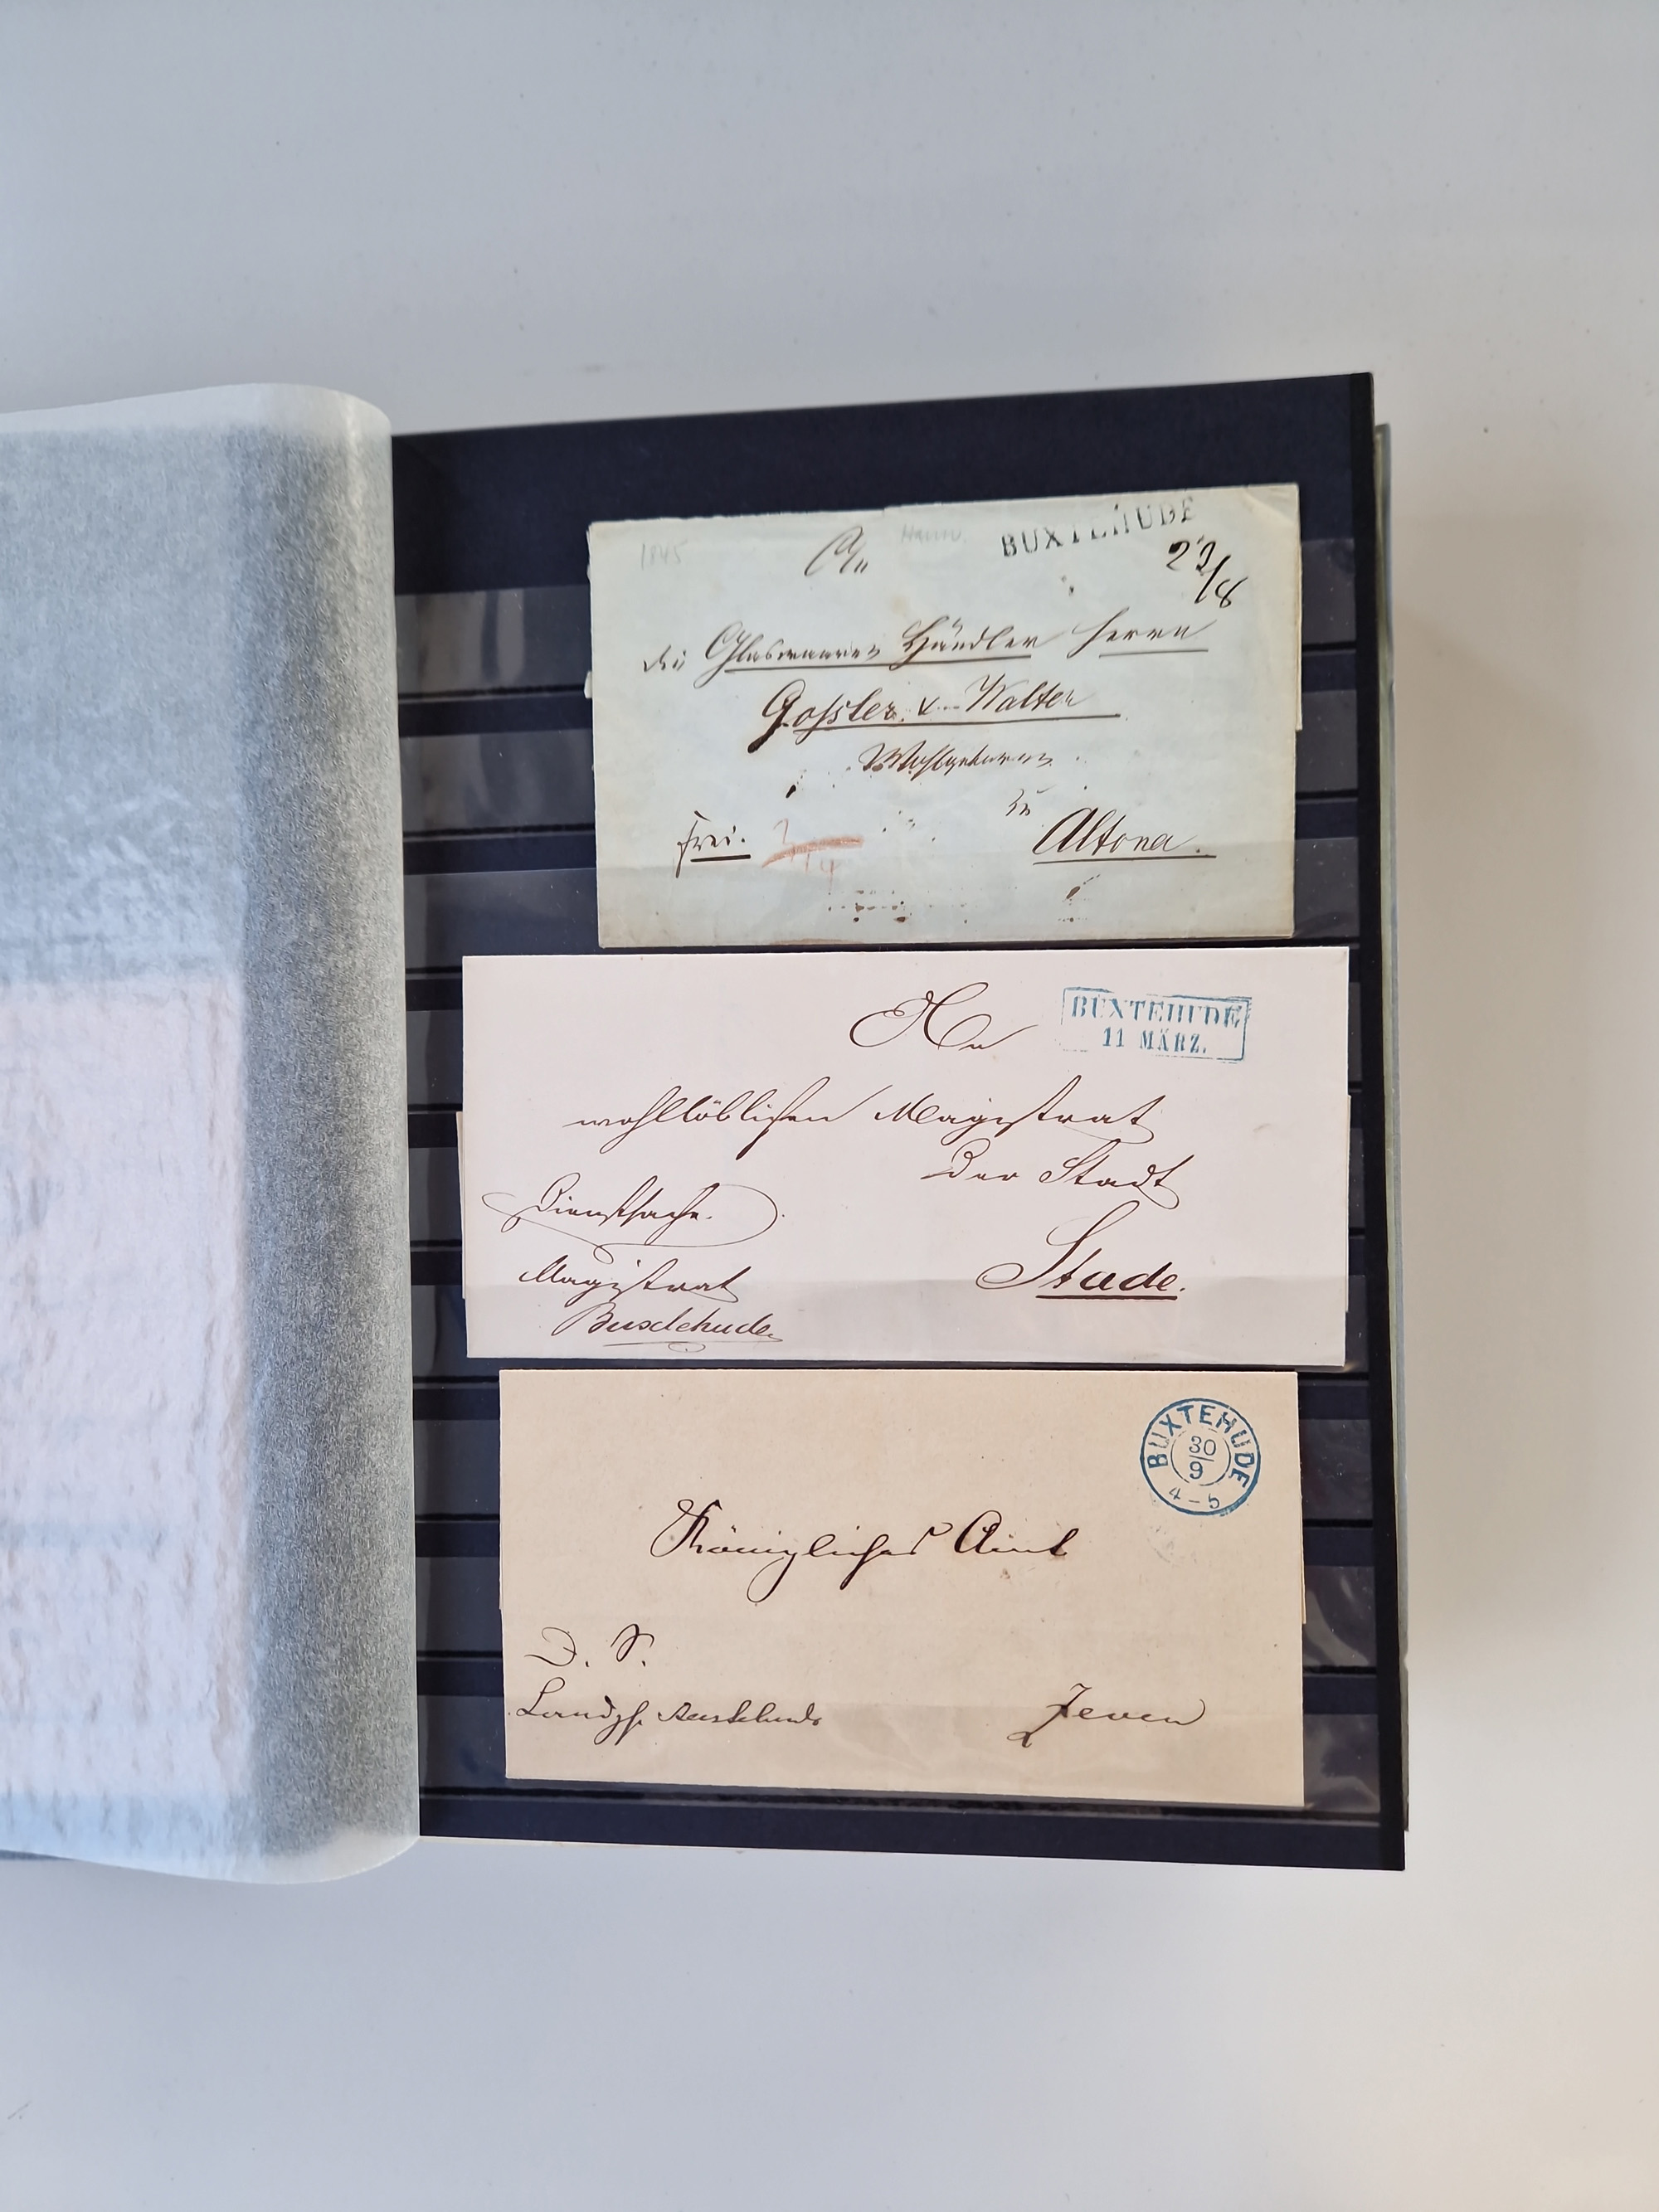 1845
Hann.
BUXTEHUDE
23/8
An
die Glaswaaren Händler Herrn
Gossler & Walter
Wohlgeboren
zu
frei.
Altona.
BUXTEHUDE
11 MÄRZ.
An
wohllöblichen Magistrat
der Stadt
Dienstsache.
Stade.
Magistrat
Buxtehude
BUXTEHUDE
30
9
4-5
Königliches Amt
D. S.
Buxtehude
Zeven